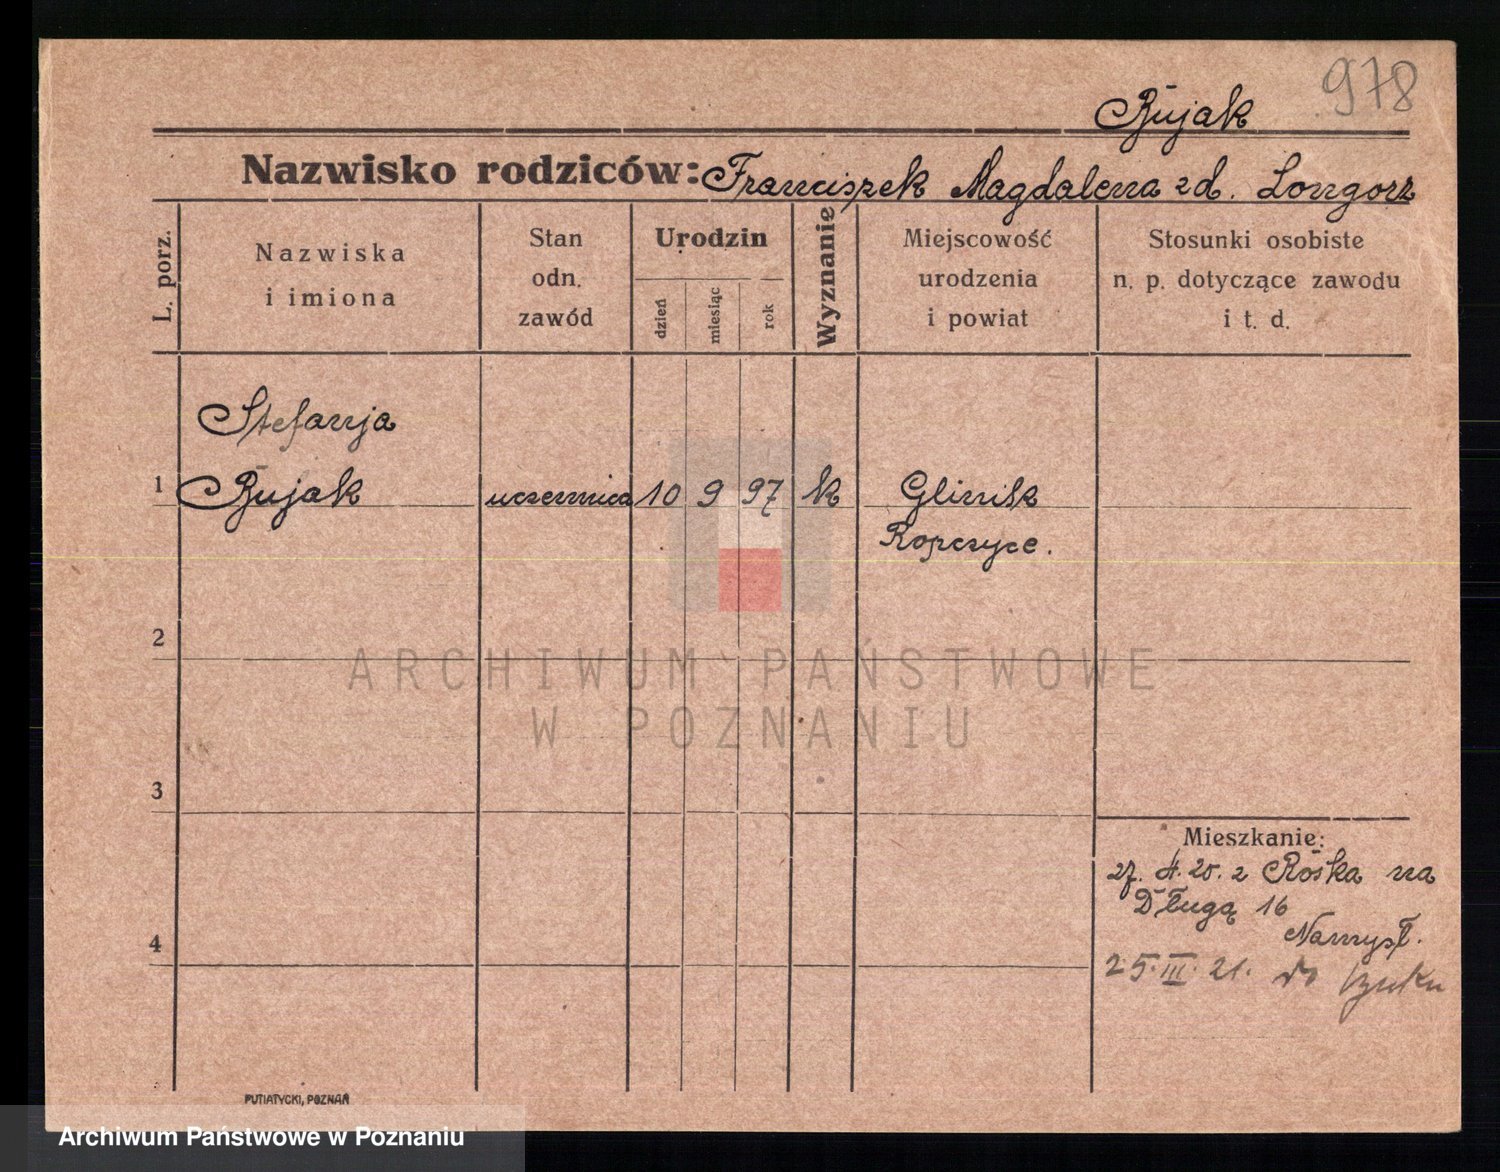 978
Bujak
Nazwisko rodziców: Franciszek Magdalena zd. Longorz
L. porz.
Nazwiska
i imiona
Stan
odn.
zawód
Urodzin
dzień
miesiąc
rok
Wyznanie
Miejscowość
urodzenia
i powiat
Stosunki osobiste
n. p. dotyczące zawodu
i t. d.
Stefanja
1 Bujak uczennica 10 9 97 k Glinik
Ropczyce.
2
3
4
ARCHIWUM PAŃSTWOWE
W POZNANIU
Mieszkanie:
27. 4. 20. z Rośka na
Długą 16
Namysł.
25. III. 21. do
PUTIATYCKI, POZNAŃ
Archiwum Państwowe w Poznaniu